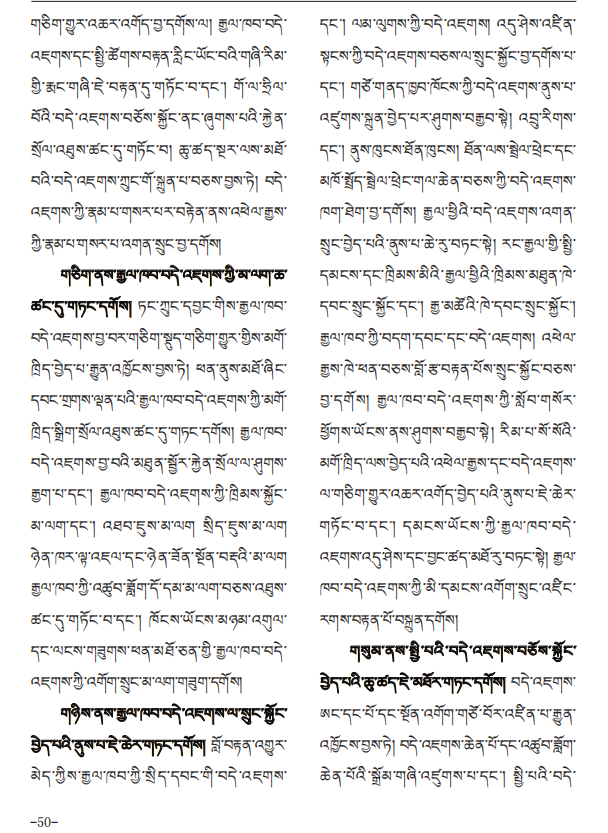 གཅིག་གྱུར་འཆར་འགོད་བྱ་དགོས་ལ། རྒྱལ་ཁབ་བདེ་
འཇགས་དང་སྤྱི་ཚོགས་བརྟན་རླིང་ཡོང་བའི་གཞི་རིམ་
གྱི་རྨང་གཞི་ཇེ་བརྟན་དུ་གཏོང་བ་དང་། གོ་ལ་ཧྲིལ་
བོའི་བདེ་འཇགས་བཅོས་སྐྱོང་ནང་ཞུགས་པའི་རྐྱེན་
སྲོལ་འཐུས་ཚང་དུ་གཏོང་བ། ཆུ་ཚད་སྔར་ལས་མཐོ་
བའི་བདེ་འཇགས་ཀྲུང་གོ་སྐྲུན་པ་བཅས་བྱས་ཏེ། བདེ་
འཇགས་ཀྱི་རྣམ་པ་གསར་པར་བརྟེན་ནས་འཕེལ་རྒྱས་
ཀྱི་རྣམ་པ་གསར་པ་འགན་སྲུང་བྱ་དགོས།
གཅིག་ནས་རྒྱལ་ཁབ་བདེ་འཇགས་ཀྱི་མ་ལག་ཆ་
ཚང་དུ་གཏང་དགོས། ཏང་ཀྲུང་དབྱང་གིས་རྒྱལ་ཁབ་
བདེ་འཇགས་བྱ་བར་གཅིག་སྡུད་གཅིག་གྱུར་གྱིས་མགོ་
ཁྲིད་བྱེད་པ་རྒྱུན་འཁྱོངས་བྱས་ཏེ། ཕན་ནུས་མཐོ་ཞིང་
དབང་གྲགས་ལྡན་པའི་རྒྱལ་ཁབ་བདེ་འཇགས་ཀྱི་མགོ་
ཁྲིད་སྒྲིག་སྲོལ་འཐུས་ཚང་དུ་གཏང་དགོས། རྒྱལ་ཁབ་
བདེ་འཇགས་བྱ་བའི་མཐུན་སྦྱོར་རྐྱེན་སྲོལ་ལ་ཤུགས་
རྒྱག་པ་དང་། རྒྱལ་ཁབ་བདེ་འཇགས་ཀྱི་ཁྲིམས་སྐྱོང་
མ་ལག་དང་། འཐབ་ཇུས་མ་ལག སྲིད་ཇུས་མ་ལག
ཉེན་ཁར་ལྟ་འཇལ་དང་ཉེན་ཟོན་སྔོན་བརྡའི་མ་ལག
རྒྱལ་ཁབ་ཀྱི་འཚུབ་ཟློག་དོ་དམ་མ་ལག་བཅས་འཐུས་
ཚང་དུ་གཏོང་བ་དང་། ཁོངས་ཡོངས་མཉམ་འགུལ་
དང་ལངས་གཟུགས་ཕན་མཐོ་ཅན་གྱི་རྒྱལ་ཁབ་བདེ་
འཇགས་ཀྱི་འགོག་སྲུང་མ་ལག་གཟུག་དགོས།
གཉིས་ནས་རྒྱལ་ཁབ་བདེ་འཇགས་ལ་སྲུང་སྐྱོང་
བྱེད་པའི་ནུས་པ་ཇེ་ཆེར་གཏང་དགོས། བློ་བརྟན་འགྱུར་
མེད་ཀྱིས་རྒྱལ་ཁབ་ཀྱི་སྲིད་དབང་གི་བདེ་འཇགས་
དང་། ལམ་ལུགས་ཀྱི་བདེ་འཇགས། འདུ་ཤེས་འཛིན་
སྟངས་ཀྱི་བདེ་འཇགས་བཅས་ལ་སྲུང་སྐྱོང་བྱ་དགོས་པ་
དང་། གཙོ་གནད་ཁྱབ་ཁོངས་ཀྱི་བདེ་འཇགས་ནུས་པ་
འཛུགས་སྐྲུན་བྱེད་པར་ཤུགས་བརྒྱབ་སྟེ། འབྲུ་རིགས་
དང་། ནུས་ཁུངས་ཐོན་ཁུངས། ཐོན་ལས་སྦྲེལ་ཕྲེང་དང་
མཁོ་སྤྲོད་སྦྲེལ་ཕྲེང་གལ་ཆེན་བཅས་ཀྱི་བདེ་འཇགས་
ཁག་ཐེག་བྱ་དགོས། རྒྱལ་ཕྱིའི་བདེ་འཇགས་འགན་
སྲུང་བྱེད་པའི་ནུས་པ་ཆེ་རུ་བཏང་སྟེ། རང་རྒྱལ་གྱི་སྤྱི་
དམངས་དང་ཁྲིམས་མིའི་རྒྱལ་ཕྱིའི་ཁྲིམས་མཐུན་ཁེ་
དབང་སྲུང་སྐྱོང་དང་། རྒྱ་མཚོའི་ཁེ་དབང་སྲུང་སྐྱོང་།
རྒྱལ་ཁབ་ཀྱི་བདག་དབང་དང་བདེ་འཇགས། འཕེལ་
རྒྱས་ཁེ་ཕན་བཅས་བློ་རྩ་བརྟན་པོས་སྲུང་སྐྱོང་བཅས་
བྱ་དགོས། རྒྱལ་ཁབ་བདེ་འཇགས་ཀྱི་སློབ་གསོར་
ཕྱོགས་ཡོངས་ནས་ཤུགས་བརྒྱབ་སྟེ། རིམ་པ་སོ་སོའི་
མགོ་ཁྲིད་ལས་བྱེད་པའི་འཕེལ་རྒྱས་དང་བདེ་འཇགས་
ལ་གཅིག་གྱུར་འཆར་འགོད་བྱེད་པའི་ནུས་པ་ཇེ་ཆེར་
གཏོང་བ་དང་། དམངས་ཡོངས་ཀྱི་རྒྱལ་ཁབ་བདེ་
འཇགས་འདུ་ཤེས་དང་བྱང་ཚད་མཐོ་རུ་བཏང་སྟེ། རྒྱལ་
ཁབ་བདེ་འཇགས་ཀྱི་མི་དམངས་འགོག་སྲུང་འཛིང་
རགས་བརྟན་པོ་བསྐྲུན་དགོས།
གསུམ་ནས་སྤྱི་པའི་བདེ་འཇགས་བཅོས་སྐྱོང་
བྱེད་པའི་ཆུ་ཚད་ཇེ་མཐོར་གཏང་དགོས། བདེ་འཇགས་
ཨང་དང་པོ་དང་སྔོན་འགོག་གཙོ་བོར་འཛིན་པ་རྒྱུན་
འཁྱོངས་བྱས་ཏེ། བདེ་འཇགས་ཆེན་པོ་དང་འཚུབ་ཟློག་
ཆེན་པོའི་སྒྲོམ་གཞི་འཛུགས་པ་དང་། སྤྱི་པའི་བདེ་
–50–